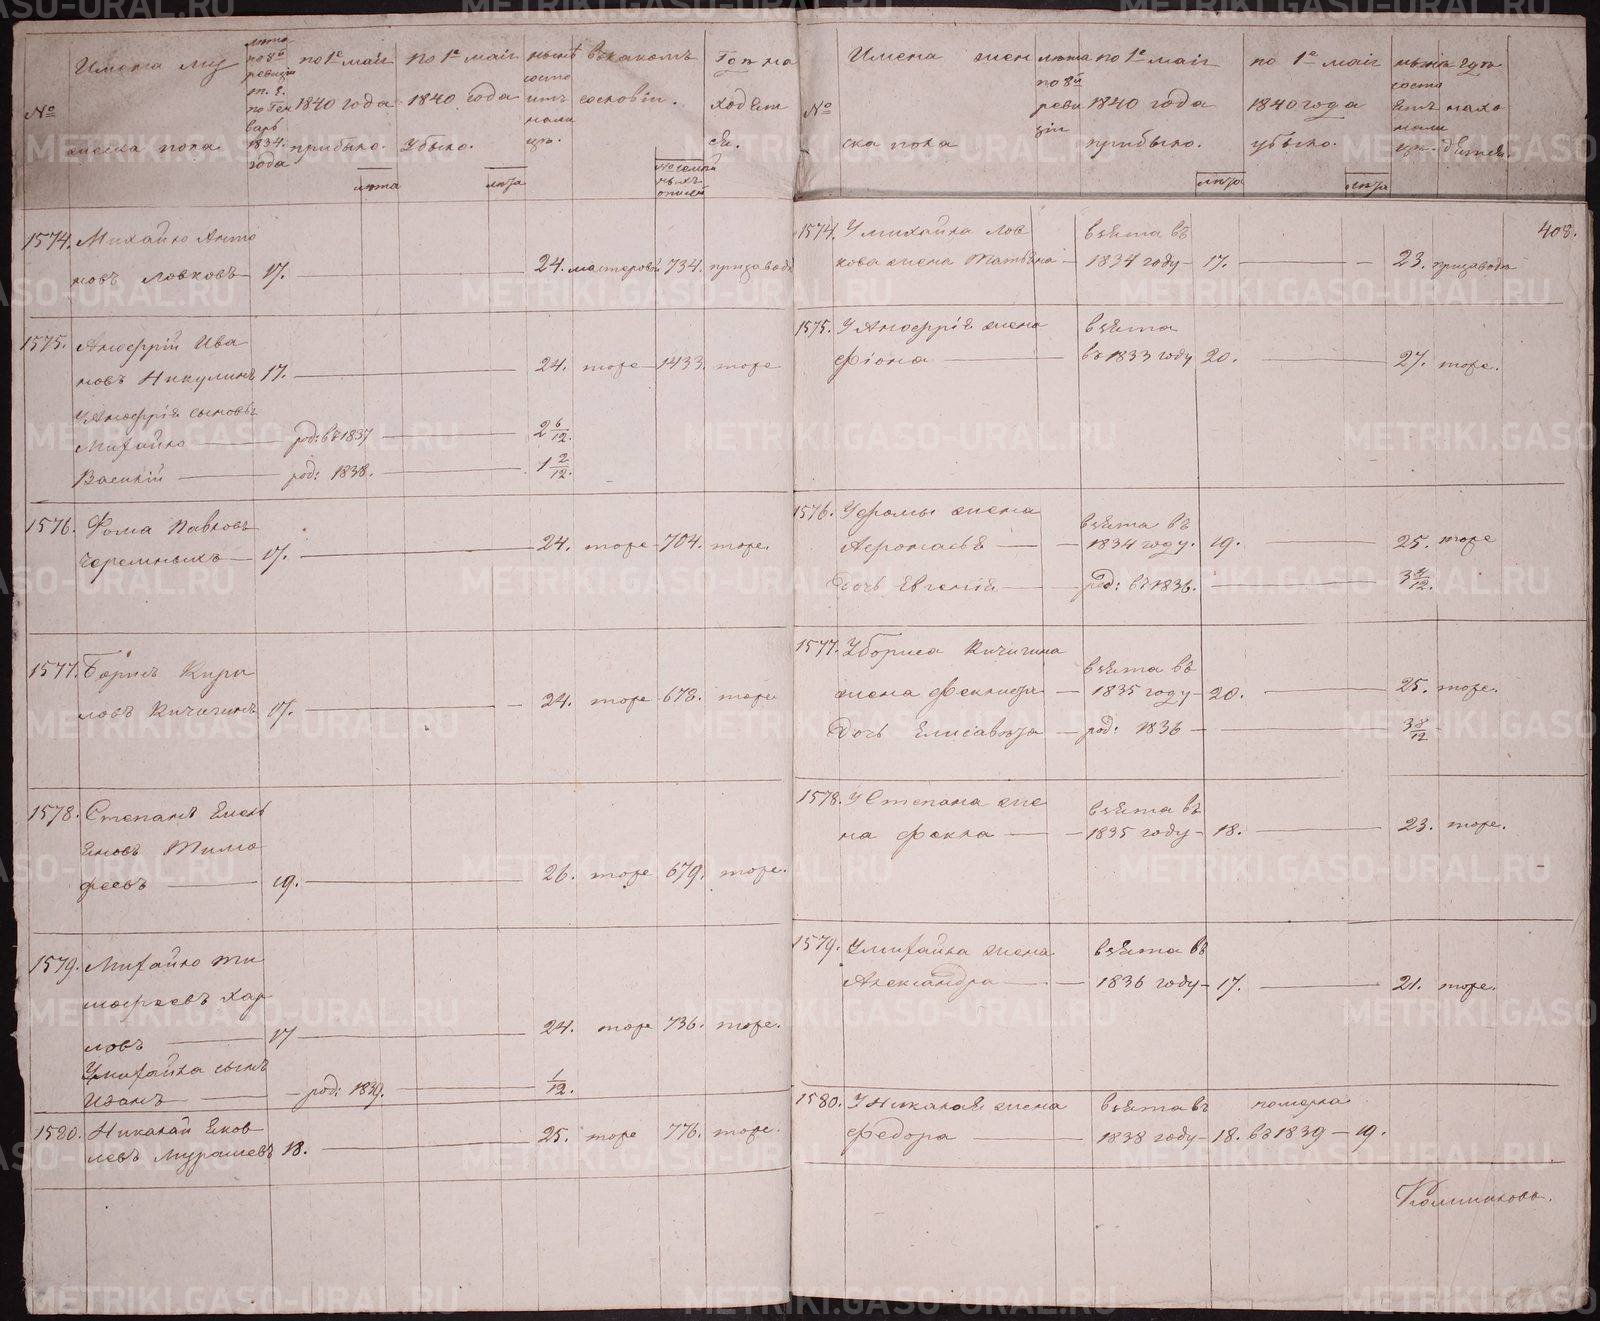 Имена муж
ческа пола
№
лета
по 8й
ревизи
т. е.
по Ген
варь
1834
года
по 1е маiя
1840 года
прибыло.
лета
по 1е маiя
1840 года
убыло.
лета
ныне
состо
итъ
нали
цо.
въ какомъ
сословiи.
№ семей
ныхъ
описей
Гдѣ на
ходит
ся.
1574. Михайло Анто
новъ Ловковъ 17. 24. мастеровой 734. при заводе
1575. Анофрiй Ива
новъ Никулинъ 17. 24. тоже 1433. тоже
У Анофрiя сыновья
Михайло род: въ 1837 2 6/12.
Василiй род: 1838. 1 2/12.
1576. Фома Павловъ
Черемныхъ 17. 24. тоже 704. тоже.
1577. Борисъ Кири
ловъ Кичигинъ 17. 24. тоже 678. тоже
1578. Степанъ Емель
яновъ Тимо
феевъ 19. 26. тоже 679. тоже.
1579. Михайло Ти
мофеевъ Хар
ловъ 17 24. тоже 736. тоже.
У Михайла сынъ
Иванъ род: 1839. 1/12.
1580. Николай Яков
левъ Мурашевъ 18. 25. тоже 776. тоже.
№
Имена жен
ска пола
лета
по 8й
реви
зiи
по 1е маiя
1840 года
прибыло.
лета
по 1е маiя
1840 года
убыло.
лета
ныне
состо
итъ
нали
цо.
где
нахо
дится.
408.
1574. У Михайла Лов
кова жена Татьяна взята въ
1834 году 17. 23. при заводе
1575. У Анофрiя жена взята
Фiона въ 1833 году 20. 27. тоже.
1576. У Фомы жена взята въ
Афонасья 1834 году. 19. 25. тоже
Дочь Евгенiя род: въ 1836. 3 4/12.
1577. У Бориса Кичигина взята въ
жена Феклифа 1835 году 20. 25. тоже.
Дочь Елисавета род: 1836 3 8/12
1578. У Степана же взята въ
на Фекла 1835 году 18. 23. тоже.
1579. У Михайла жена взята въ
Александра 1836 году 17. 21. тоже.
1580. У Николая жена взята въ померла
Федора 1838 году 18. въ 1839 19.